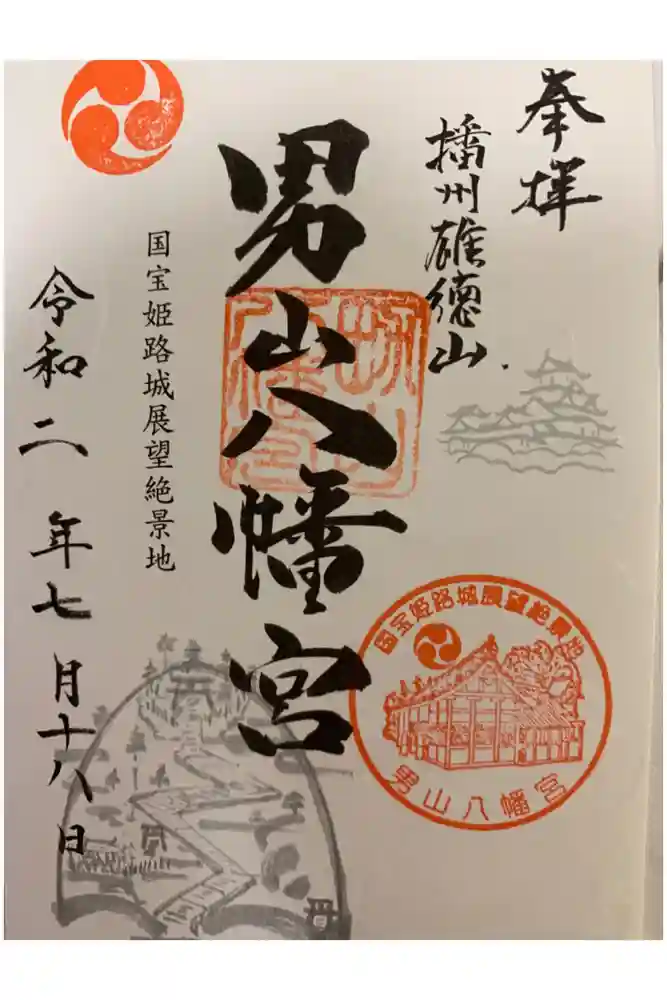 奉拝
播州雄徳山
男山八幡宮
国宝姫路城展望絶景地
令和二年七月十八日
国宝姫路城展望絶景地
男山八幡宮